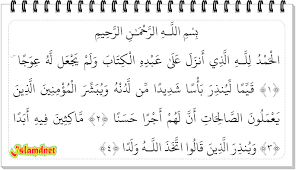 بِسْمِ اللَّـهِ الرَّحْمَـٰنِ الرَّحِيمِ
الْحَمْدُ لِلَّـهِ الَّذِي أَنزَلَ عَلَىٰ عَبْدِهِ الْكِتَابَ وَلَمْ يَجْعَل لَّهُ عِوَجًا ۜ
﴿١﴾ قَيِّمًا لِّيُنذِرَ بَأْسًا شَدِيدًا مِّن لَّدُنْهُ وَيُبَشِّرَ الْمُؤْمِنِينَ الَّذِينَ
يَعْمَلُونَ الصَّالِحَاتِ أَنَّ لَهُمْ أَجْرًا حَسَنًا ﴿٢﴾ مَّاكِثِينَ فِيهِ أَبَدًا
﴿٣﴾ وَيُنذِرَ الَّذِينَ قَالُوا اتَّخَذَ اللَّـهُ وَلَدًا ﴿٤﴾
Islamdnet